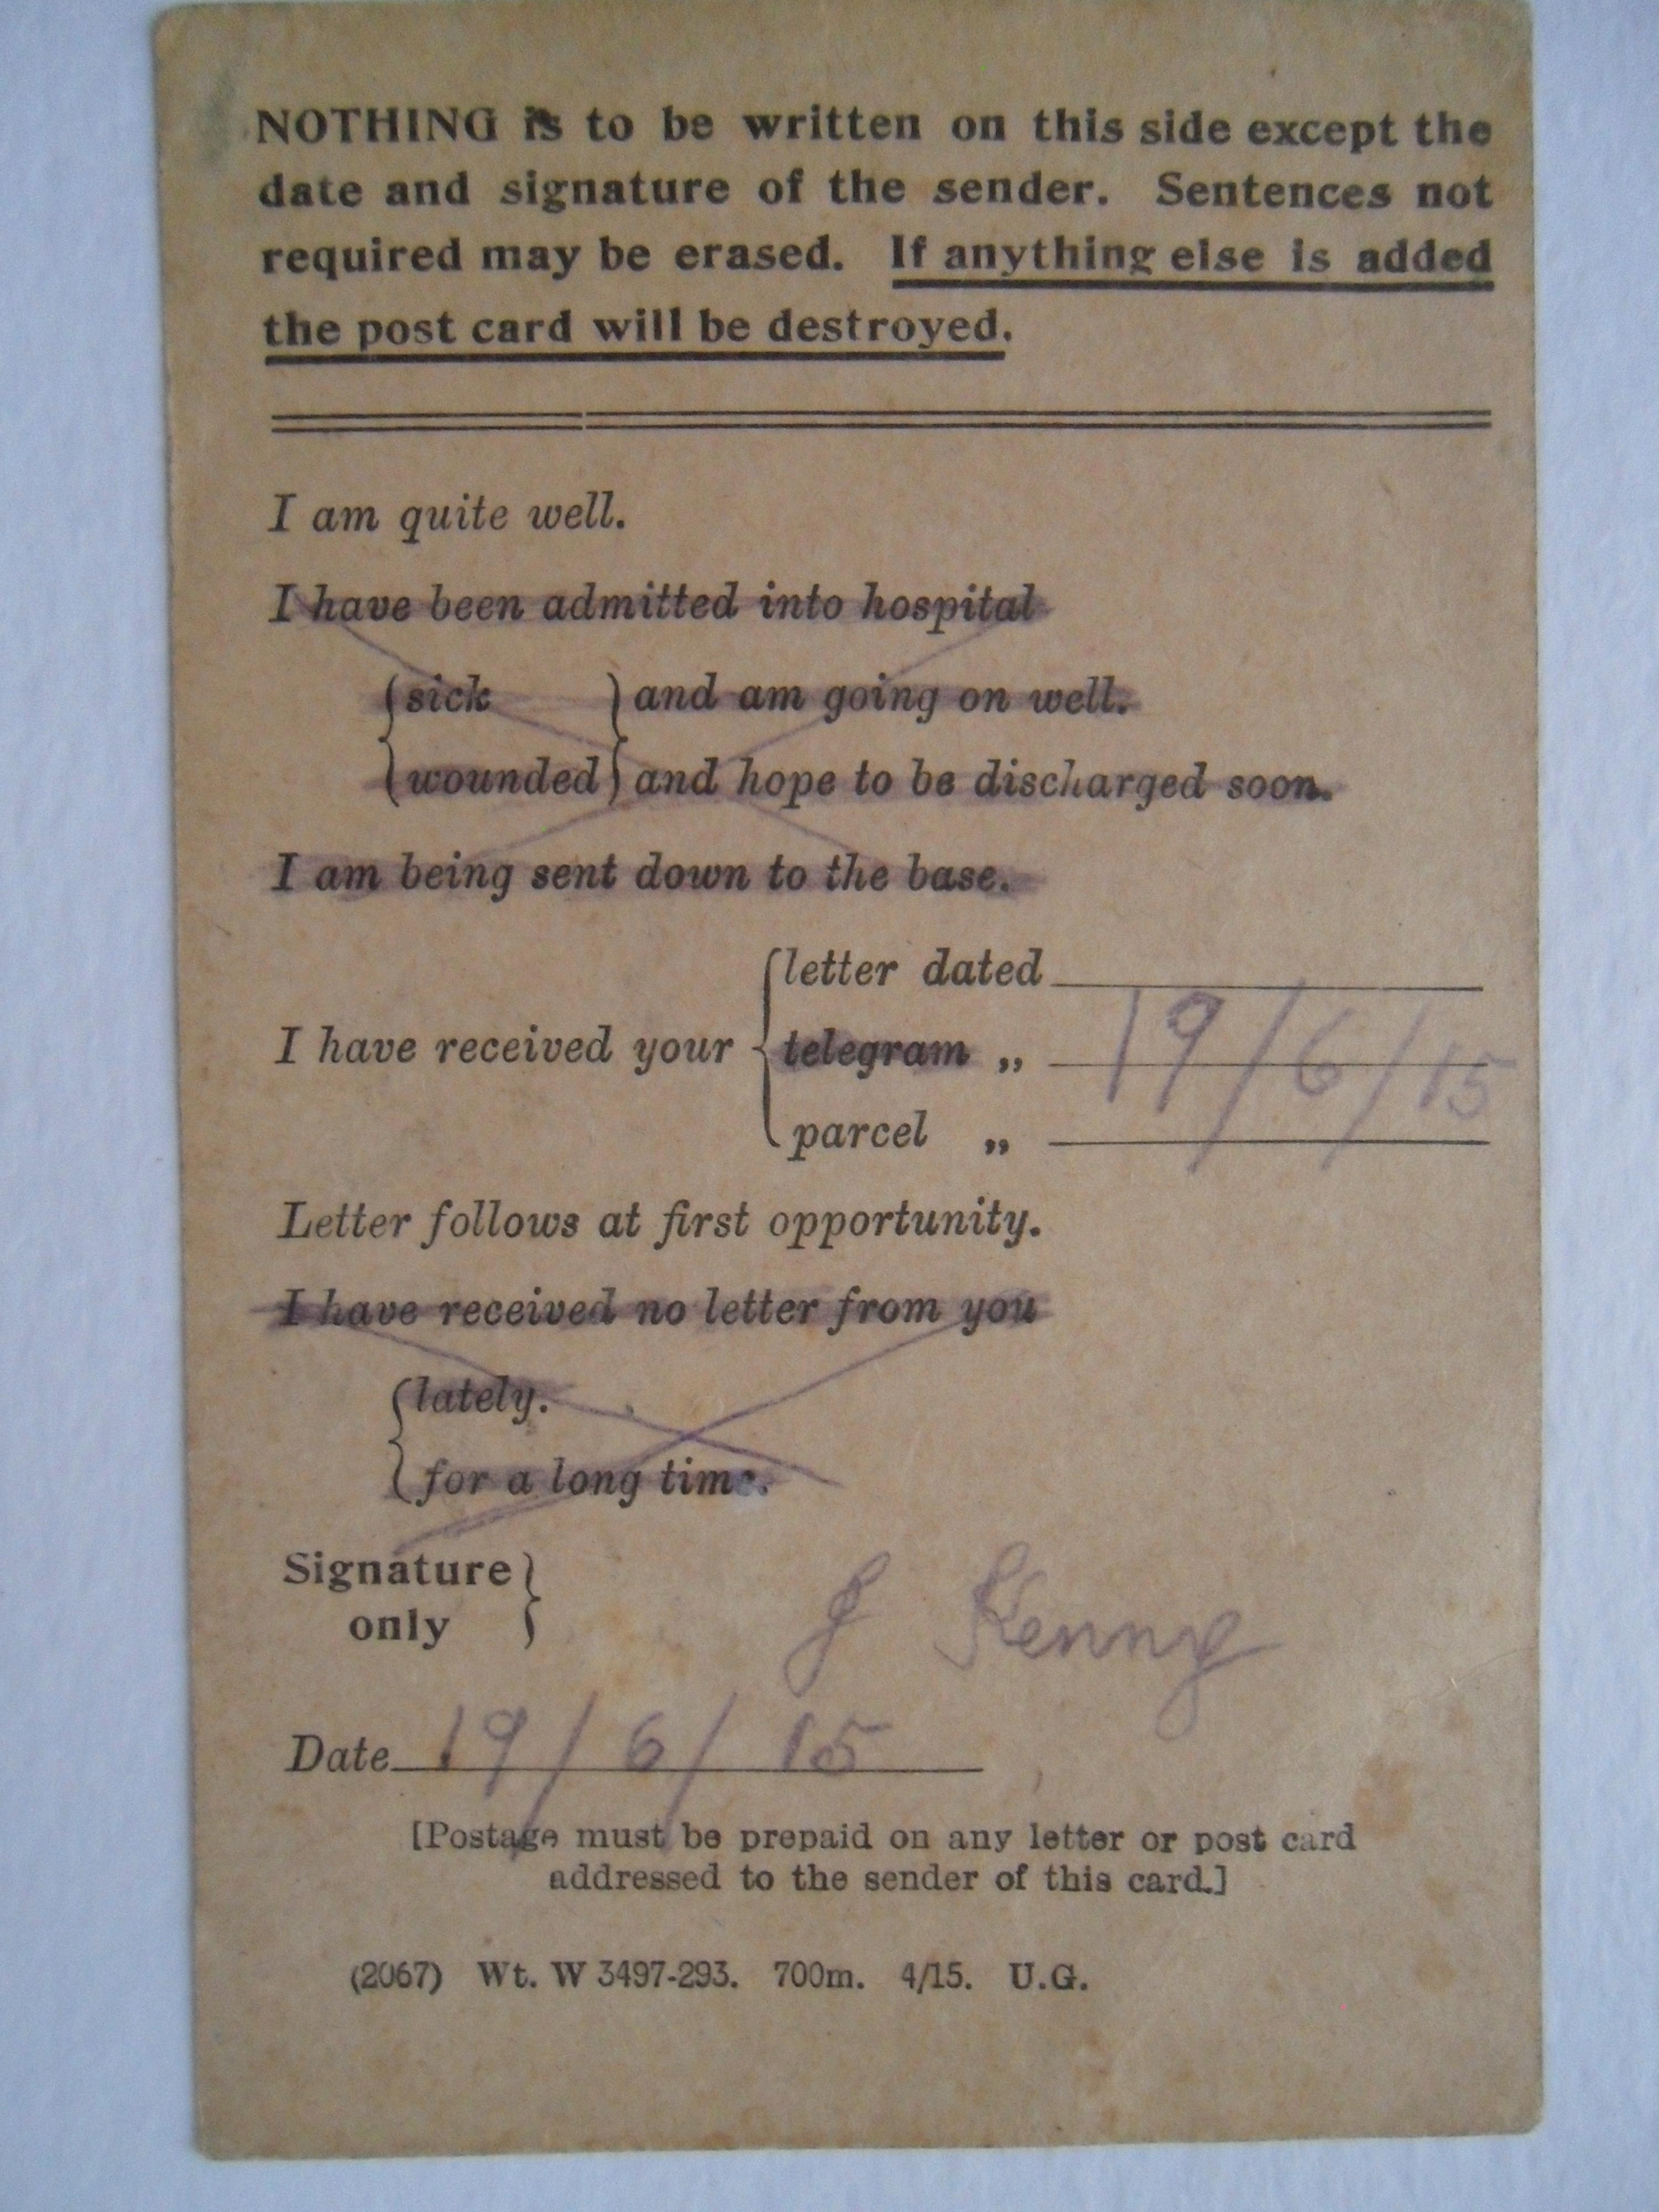 NOTHING is to be written on this side except the
date and signature of the sender. Sentences not
required may be erased. If anything else is added
the post card will be destroyed.
I am quite well.
I have been admitted into hospital
{sick } and am going on well.
{wounded} and hope to be discharged soon.
I am being sent down to the base.
letter dated
I have received your { telegram „ 19/6/15
parcel „
Letter follows at first opportunity.
I have received no letter from you
{lately.
{for a long time.
Signature }
only
J Kenny
Date 19/6/15
[Postage must be prepaid on any letter or post card
addressed to the sender of this card.]
(2067) Wt. W 3497-293. 700m. 4/15. U.G.